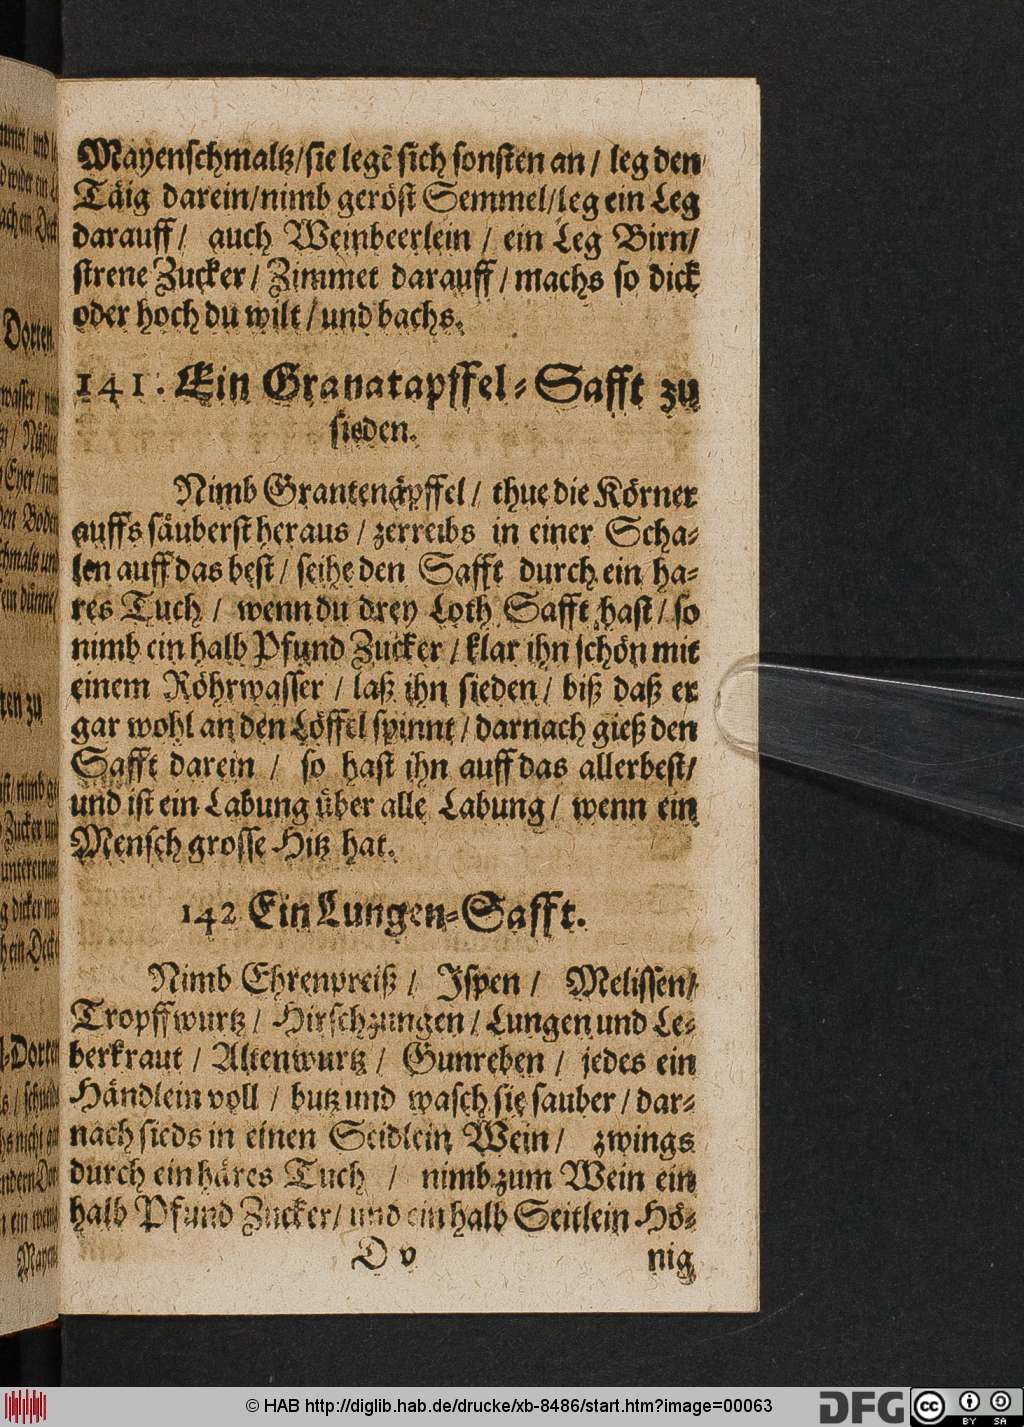 Mayenschmaltz/sie legẽ sich sonsten an / leg den
Täig darein/nimb geröst Semmel/leg ein Leg
darauff / auch Weinbeerlein / ein Leg Birn/
strene Zucker / Zimmet darauff / machs so dick
oder hoch du wilt / und bachs.
141. Ein Granatapffel-Safft zu
sieden.
Nimb Grantenäpffel / thue die Körner
auffs säuberst heraus / zerreibs in einer Scha-
len auff das best / seihe den Safft durch ein ha-
res Tuch / wenn du drey Loth Safft hast / so
nimb ein halb Pfund Zucker / klar ihn schön mit
einem Röhrwasser / laß ihn sieden / biß daß er
gar wohl an den Löffel spinnt / darnach gieß den
Safft darein / so hast ihn auff das allerbest/
und ist ein Labung über alle Labung / wenn ein
Mensch grosse Hitz hat.
142 Ein Lungen-Safft.
Nimb Ehrenpreiß / Ispen / Melissen/
Tropffwurtz / Hirschzungen / Lungen und Le-
berkraut / Altenwurtz / Gunreben / jedes ein
Händlein voll / butz und wasch sie sauber / dar-
nach sieds in einen Seidlein Wein / zwings
durch ein häres Tuch / nimb zum Wein ein
halb Pfund Zucker / und ein halb Seitlein Hö-
D v nig
Dorten.
© HAB http://diglib.hab.de/drucke/xb-8486/start.htm?image=00063
DFG
cc BY SA